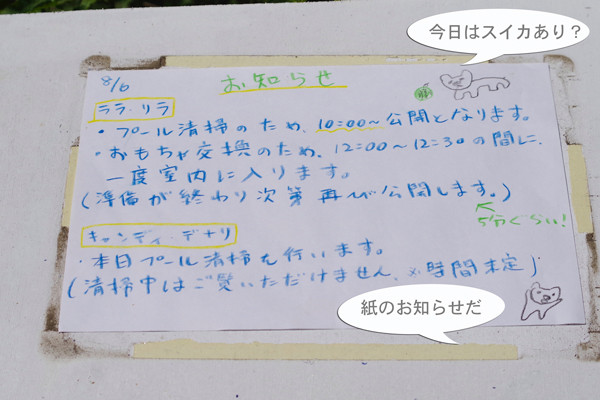 今日はスイカあり？
8/6
お知らせ
ララ・リラ
・プール清掃のため、10:00～公開となります。
・おもちゃ交換のため、12:00～12:30の間に、
一度室内に入ります。
(準備が終わり次第再び公開します。)
5分くらい！
キャンディ・デナリ
・本日プール清掃を行います。
(清掃中はご覧いただけません、※時間未定)
紙のお知らせだ